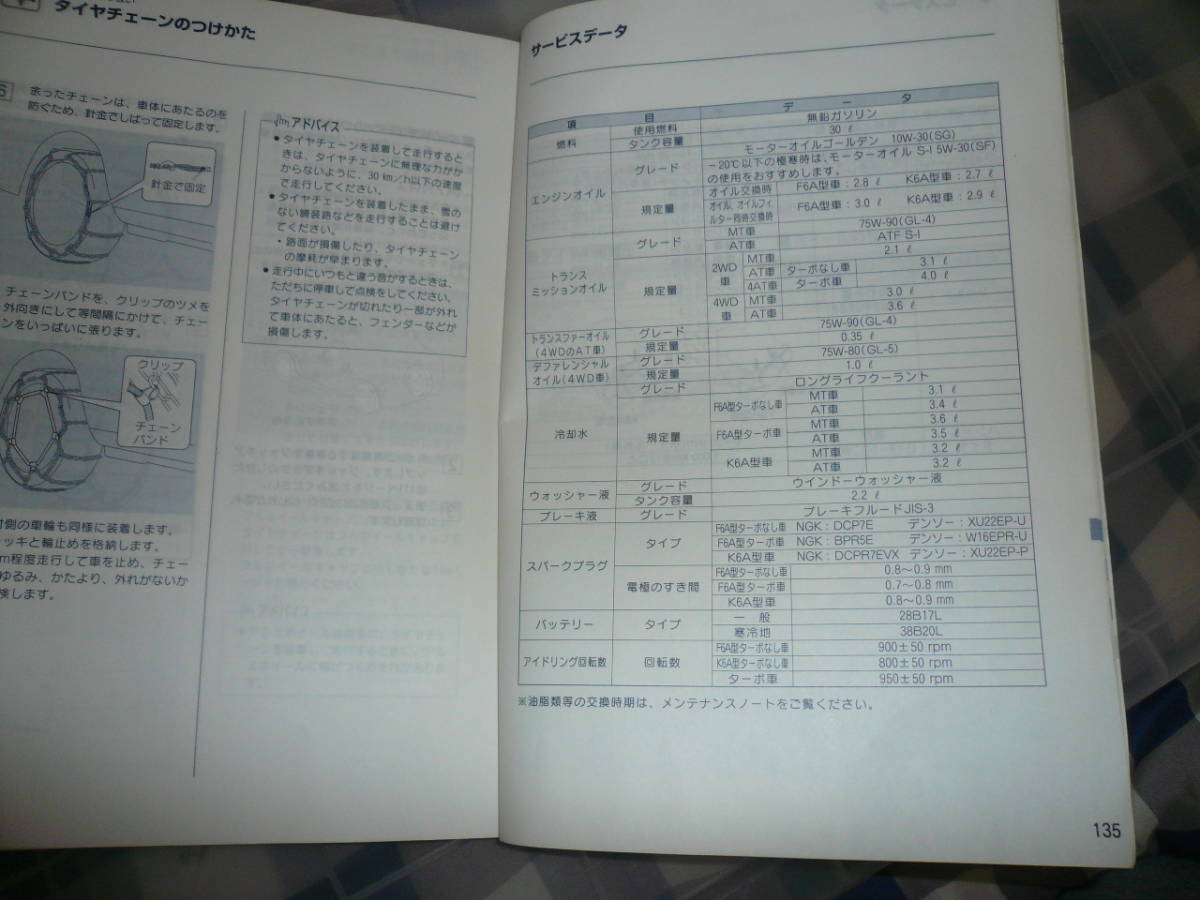 タイヤチェーンのつけかた
余ったチェーンは、車体にあたるのを
防ぐため、針金でしばって固定します。
針金で固定
チェーンバンドを、クリップのツメを
外向きにして等間隔にかけて、チェー
ンをいっぱいに張ります。
クリップ
チェーン
バンド
側の車輪も同様に装着します。
ッキと輪止めを格納します。
m程度走行して車を止め、チェー
ゆるみ、かたより、外れがないか
検します。
アドバイス
●タイヤチェーンを装着して走行すると
きは、タイヤチェーンに無理な力がか
からないように、30 km/h以下の速度
で走行してください。
●タイヤチェーンを装着したまま、雪の
ない舗装路などを走行することは避け
てください。
・路面が損傷したり、タイヤチェーン
の摩耗が早まります。
●走行中にいつもと違う音がするときは、
ただちに停車して点検をしてください。
タイヤチェーンが切れたり一部が外れ
て車体にあたると、フェンダーなどが
損傷します。
サービスデータ
項 目 データ
燃料 使用燃料 無鉛ガソリン
タンク容量 30 ℓ
エンジンオイル グレード モーターオイルゴールデン 10W-30(SG)
−20℃以下の極寒時は、モーターオイル S-I 5W-30(SF)
の使用をおすすめします。
規定量 オイル交換時 F6A型車：2.8 ℓ K6A型車：2.7 ℓ
オイル、オイルフィ
ルター同時交換時 F6A型車：3.0 ℓ K6A型車：2.9 ℓ
トランス
ミッションオイル グレード MT車 75W-90(GL-4)
AT車 ATF S-I
規定量 2WD
車 MT車 2.1 ℓ
AT車 ターボなし車 3.1 ℓ
4AT車 ターボ車 4.0 ℓ
4WD
車 MT車 3.0 ℓ
AT車 3.6 ℓ
トランスファーオイル
(4WDのAT車) グレード 75W-90(GL-4)
規定量 0.35 ℓ
デファレンシャル
オイル(4WD車) グレード 75W-80(GL-5)
規定量 1.0 ℓ
冷却水 グレード ロングライフクーラント
規定量 F6A型ターボなし車 MT車 3.1 ℓ
AT車 3.4 ℓ
F6A型ターボ車 MT車 3.6 ℓ
AT車 3.5 ℓ
K6A型車 MT車 3.2 ℓ
AT車 3.2 ℓ
ウォッシャー液 グレード ウインドーウォッシャー液
タンク容量 2.2 ℓ
ブレーキ液 グレード ブレーキフルードJIS-3
スパークプラグ タイプ F6A型ターボなし車 NGK：DCP7E デンソー：XU22EP-U
F6A型ターボ車 NGK：BPR5E デンソー：W16EPR-U
K6A型車 NGK：DCPR7EVX デンソー：XU22EP-P
電極のすき間 F6A型ターボなし車 0.8～0.9 mm
F6A型ターボ車 0.7～0.8 mm
K6A型車 0.8～0.9 mm
バッテリー タイプ 一般 28B17L
寒冷地 38B20L
アイドリング回転数 回転数 F6A型ターボなし車 900±50 rpm
K6A型ターボなし車 800±50 rpm
ターボ車 950±50 rpm
※油脂類等の交換時期は、メンテナンスノートをご覧ください。
135